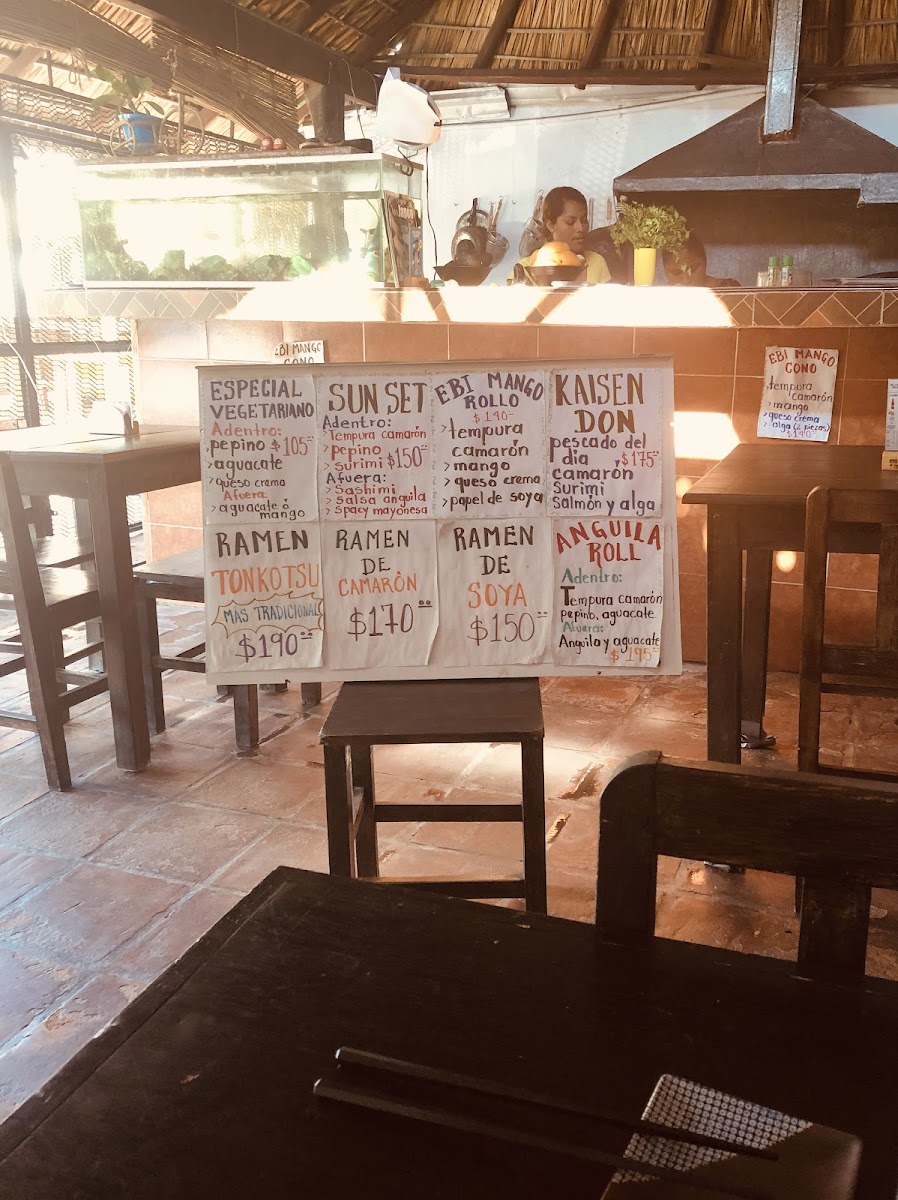 EBI MANGO
CONO
ESPECIAL
VEGETARIANO
Adentro:
>pepino $105.00
>aguacate
>queso crema
Afuera:
>aguacate ó
mango
SUN SET
Adentro:
>Tempura camarón
>Pepino
>surimi $150.00
Afuera:
>Sashimi
>salsa anguila
>spacy mayonesa
EBI MANGO
ROLLO
$190.00
>tempura
camarón
>mango
>queso crema
>papel de soya
KAISEN
DON
pescado del
día $175.00
camarón
Surimi
Salmón y alga
RAMEN
TONKOTSU
MÁS TRADICIONAL
$190.00
RAMEN
DE
CAMARÓN
$170.00
RAMEN
DE
SOYA
$150.00
ANGUILA
ROLL
Adentro:
Tempura camarón
pepino, aguacate
Afuera:
Anguila y aguacate
$195.00
EBI MANGO
CONO
>tempura
camarón
>mango
>queso crema
>alga (2 piezas)
$190.00